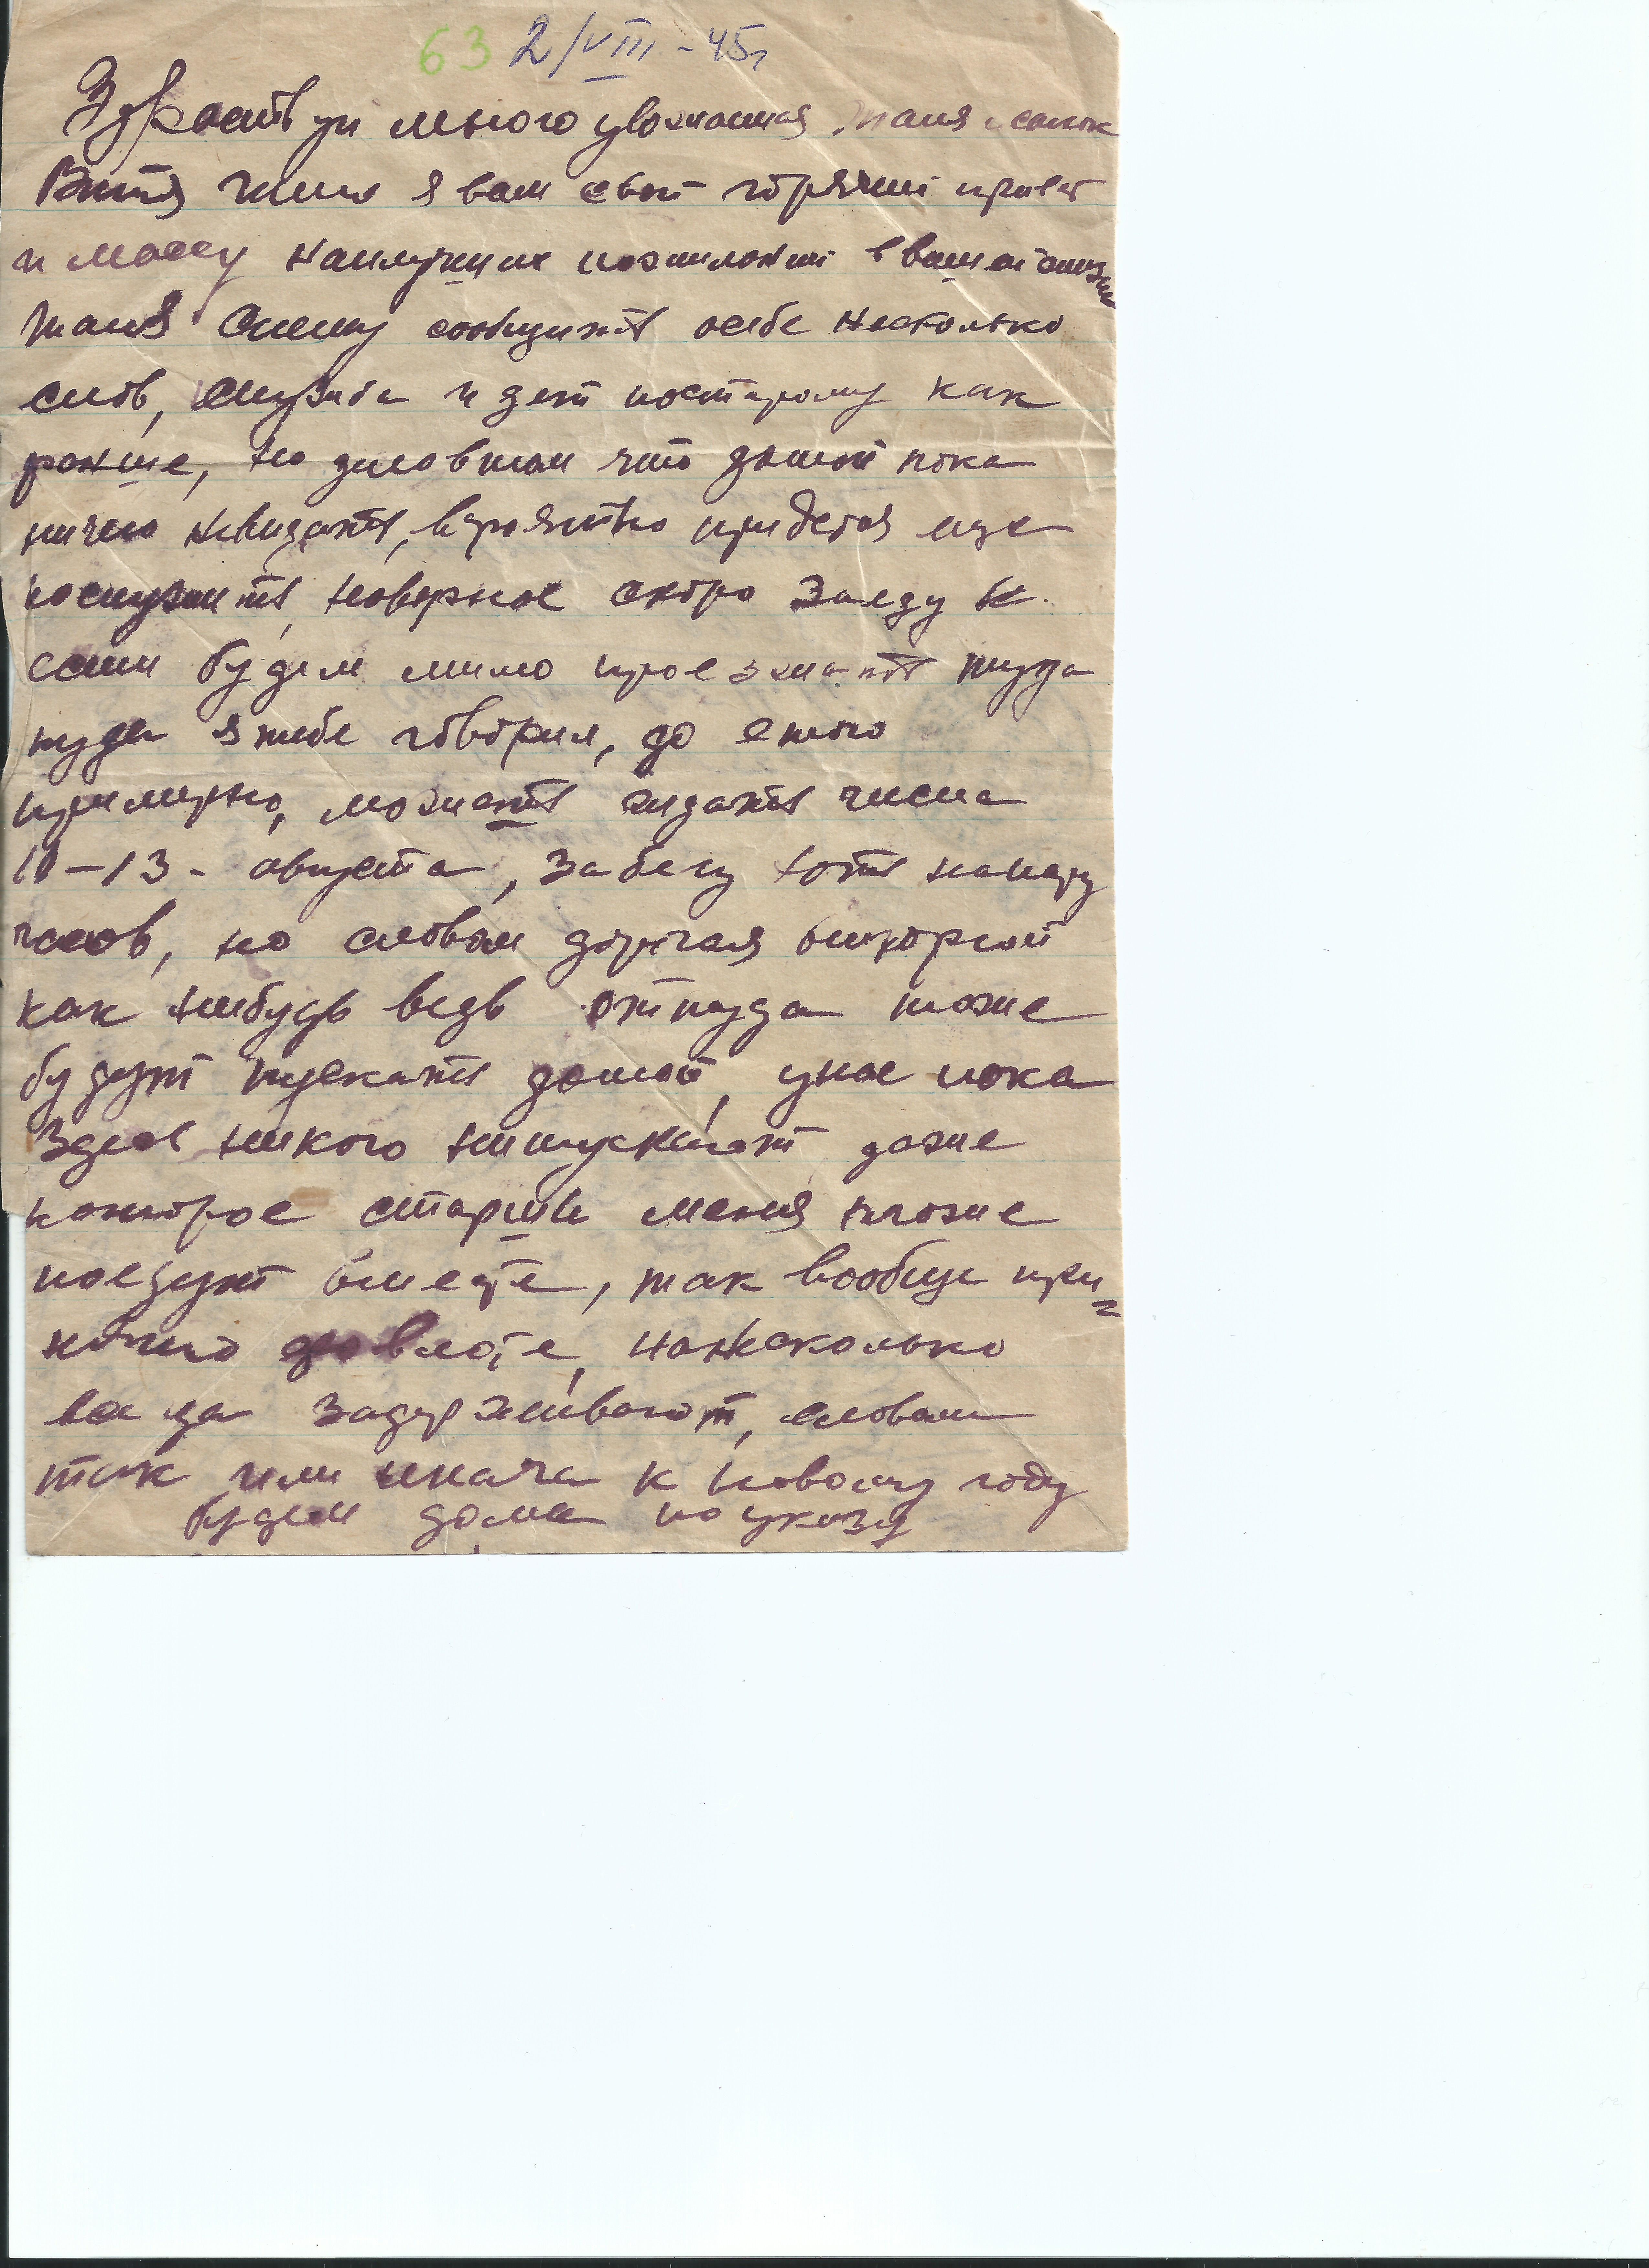 63 2/VIII-45г
Здраствуй много уважаемая Таня и сынок
Витя шлю я вам свой горячий привет
и массу наилучших пожиланий в вашей жизни
Таня Спешу сообщить осебе несколько
слов, Служба идет постарому как
раньше, но деловтом что домой пока
ничего невидать, вероятно придется еще
послужить, наверное скоро заеду к
если будем мимо проезжать туда
куда я тебе говорил, до етого
примерно, можеть ждать числа
10-13- августа, забегу хоть напару
часов, но словом дорогая
как нибудь ведь оттуда тоже
будут пускать домой, унас пока
Здесь никого нипускают даже
которое старше меня тоже
поедут вместе, так вообще при-
нанесколько
задерживают, словом
так или иначе к новому году
будем дома по указу